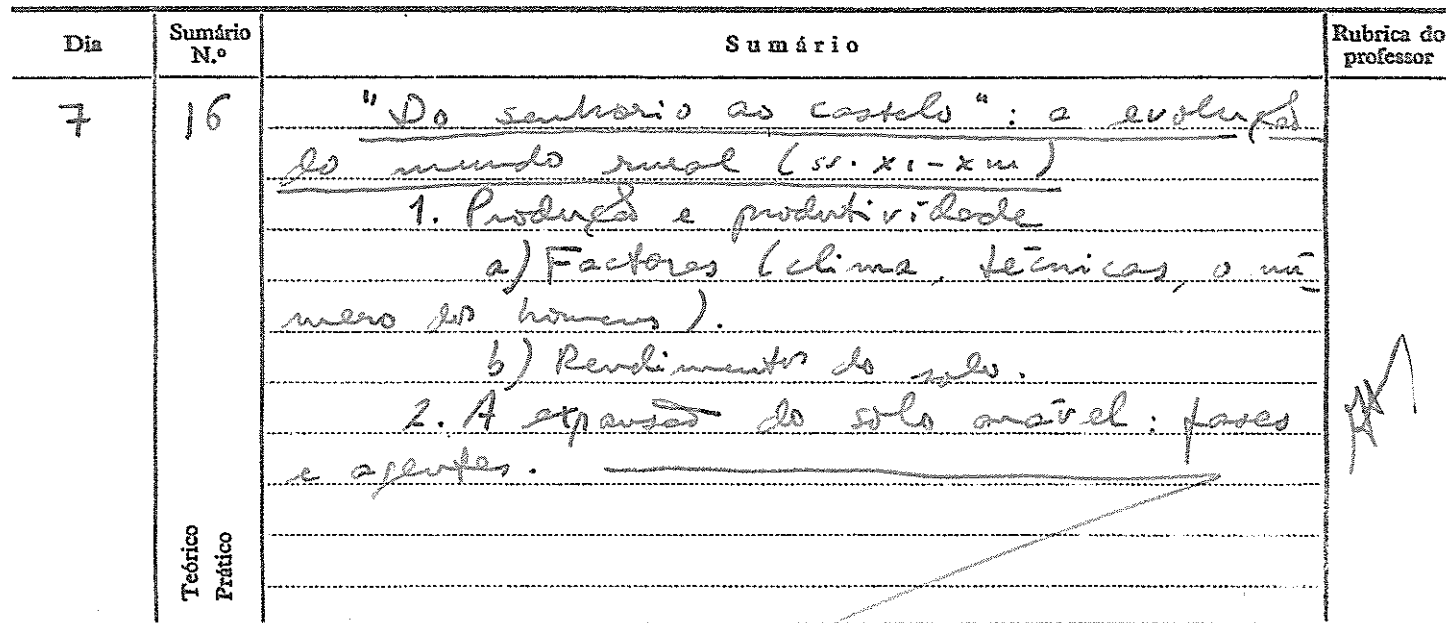 Dia
Sumário N.º
Sumário
Rubrica do professor
7
16
"Do senhorio ao castelo": a evolução
do mundo rural (ss. XI-XIII)
1. Produção e produtividade
a) Factores (clima, técnicas, o nú
mero dos homens).
b) Rendimentos do solo.
2. A expansão do solo arável: fases
e agentes.
Teórico
Prático